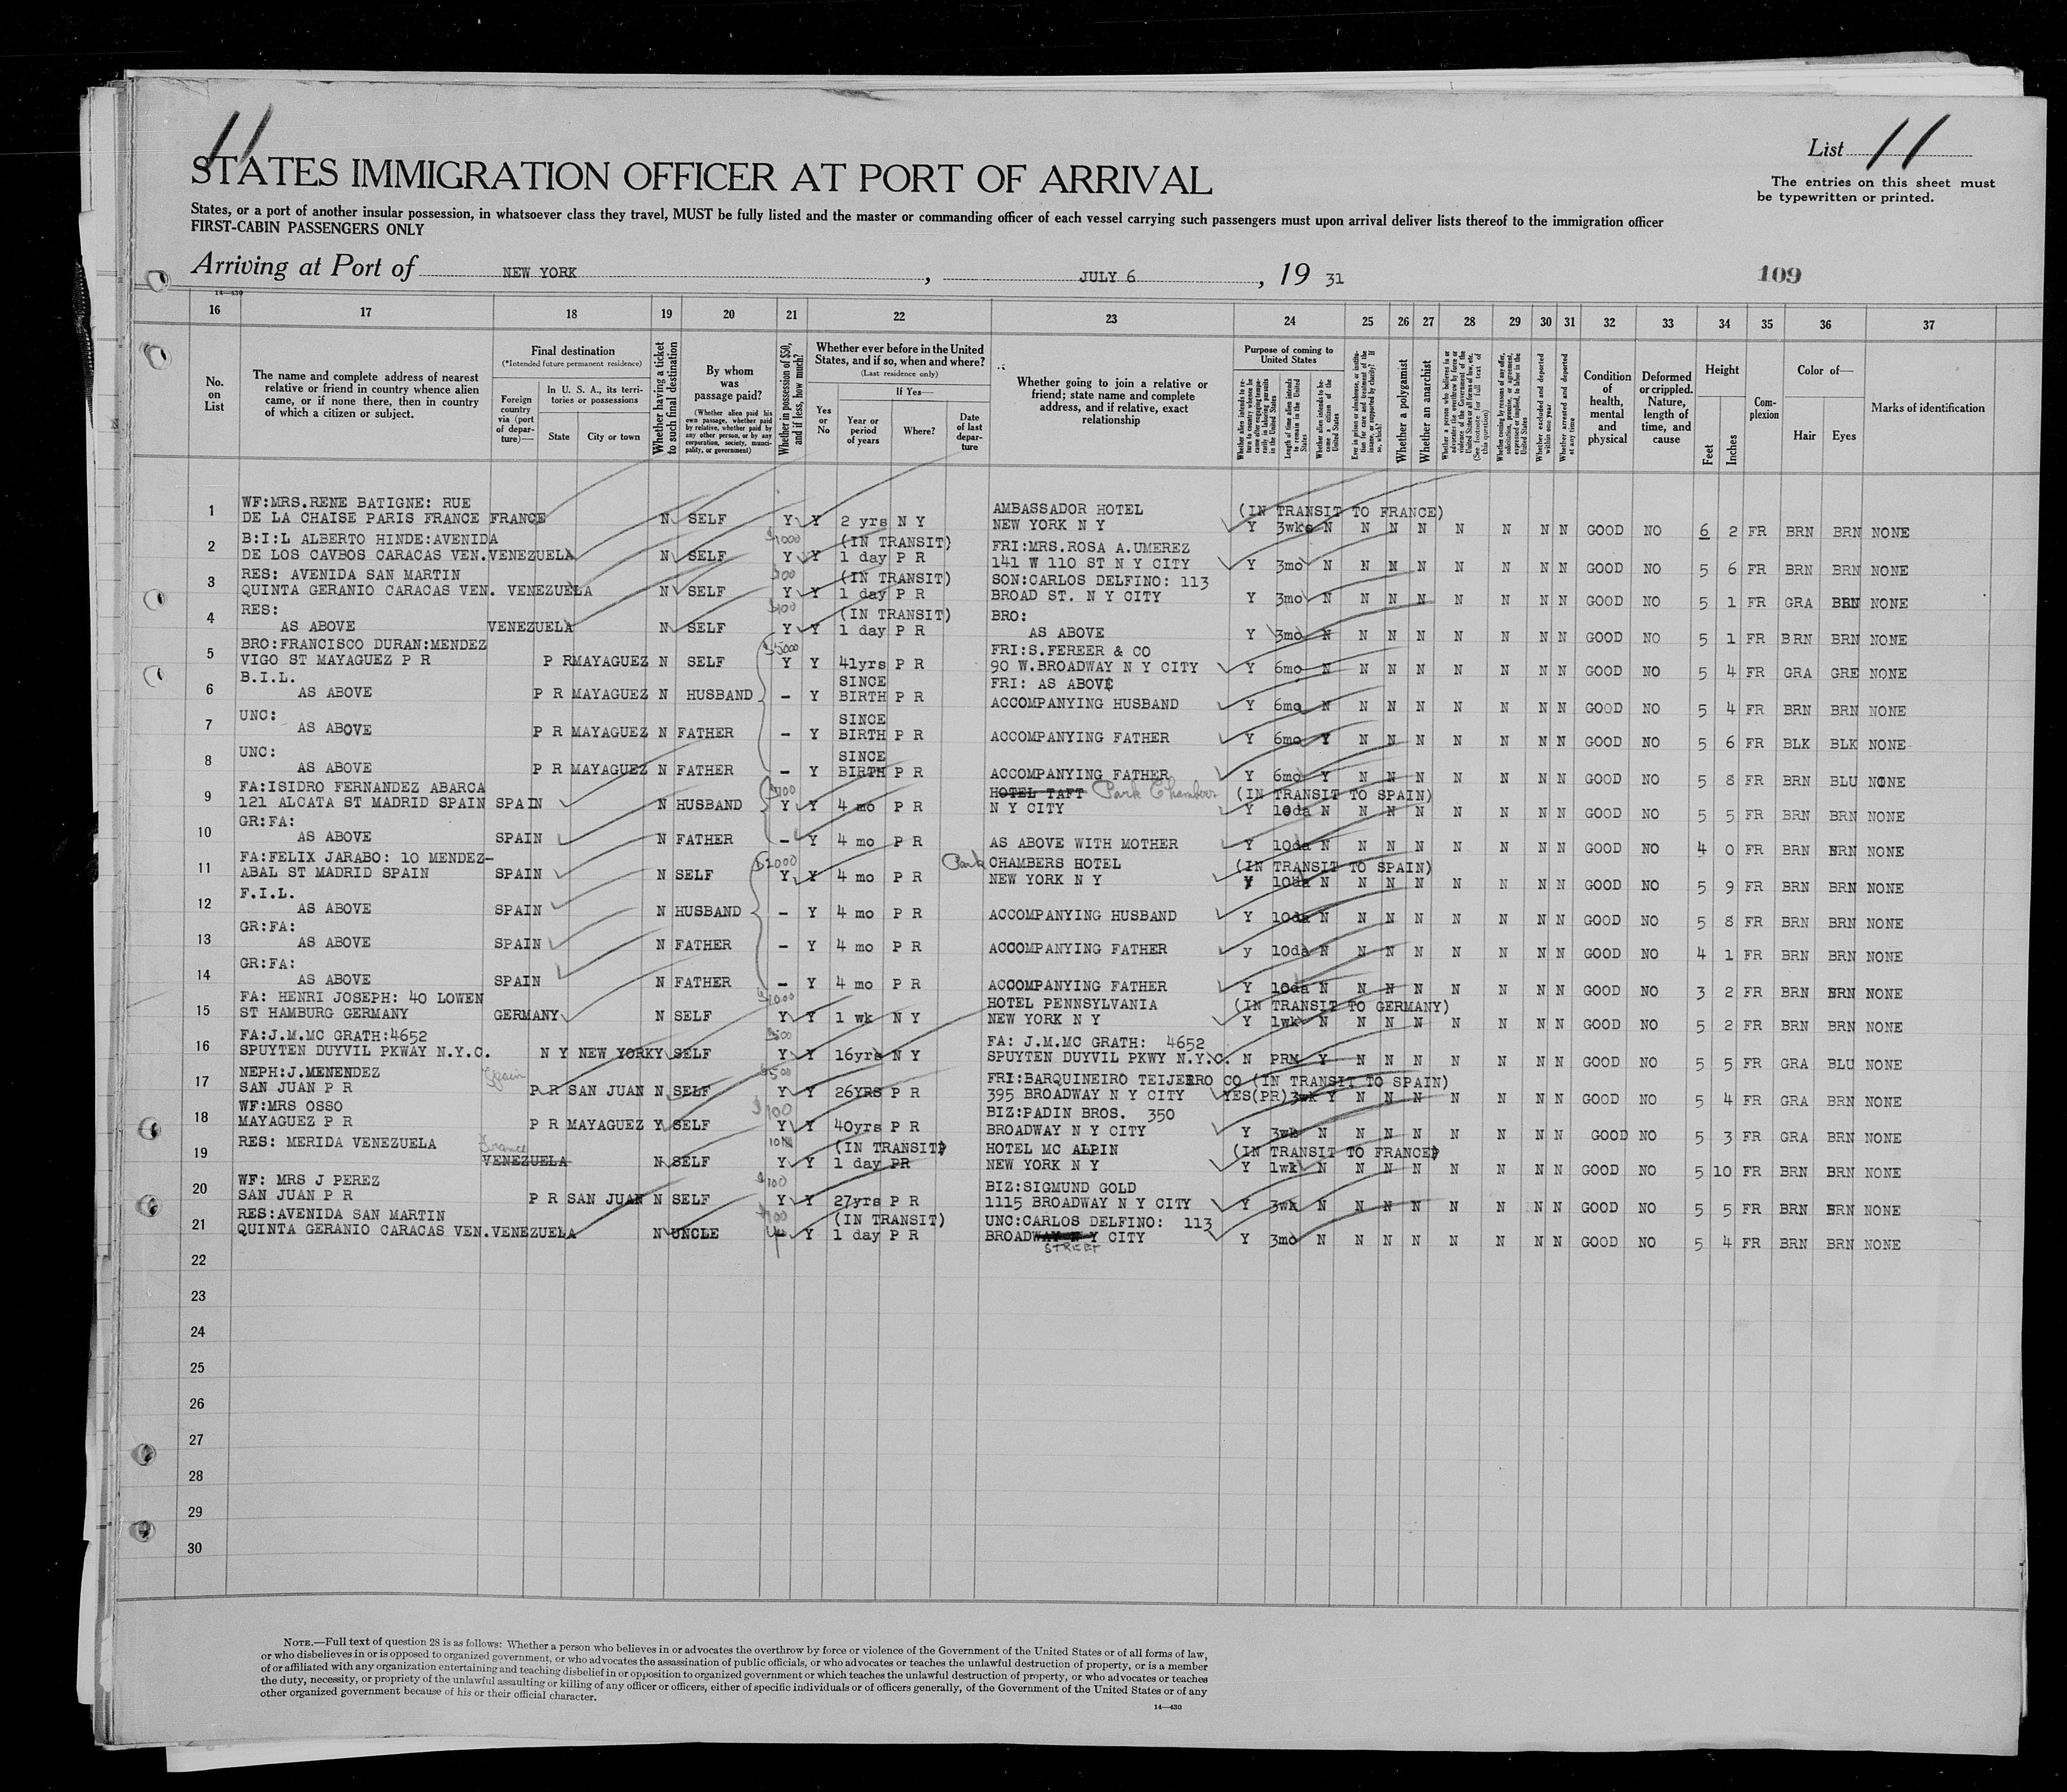 11
List 11
STATES IMMIGRATION OFFICER AT PORT OF ARRIVAL
The entries on this sheet must
be typewritten or printed.
States, or a port of another insular possession, in whatsoever class they travel, MUST be fully listed and the master or commanding officer of each vessel carrying such passengers must upon arrival deliver lists thereof to the immigration officer
FIRST-CABIN PASSENGERS ONLY
Arriving at Port of NEW YORK , JULY 6 , 19 31
109
14—430
16 17 18 19 20 21 22 23 24 25 26 27 28 29 30 31 32 33 34 35 36 37
No.
on
List
The name and complete address of nearest
relative or friend in country whence alien
came, or if none there, then in country
of which a citizen or subject.
Final destination
(*Intended future permanent residence)
Foreign
country
via (port
of depar-
ture)—
In U. S. A., its terri-
tories or possessions
State City or town
Whether having a ticket
to such final destination
By whom
was
passage paid?
(Whether alien paid his
own passage, whether paid
by relative, whether paid by
any other person, or by any
corporation, society, munici-
pality, or government)
Whether in possession of $50,
and if less, how much?
Whether ever before in the United
States, and if so, when and where?
(Last residence only)
Yes
or
No
If Yes—
Year or
period
of years
Where?
Date
of last
depar-
ture
Whether going to join a relative or
friend; state name and complete
address, and if relative, exact
relationship
Purpose of coming to
United States
Length of time alien intends
to remain in the United
States
Whether alien intends to be-
come a citizen of the
United States
Whether a polygamist
Whether an anarchist
Whether excluded and deported
within one year
Whether arrested and deported
at any time
Condition
of
health,
mental
and
physical
Deformed
or crippled.
Nature,
length of
time, and
cause
Height
Feet
Inches
Com-
plexion
Color of—
Hair Eyes
Marks of identification
1 WF:MRS.RENE BATIGNE: RUE AMBASSADOR HOTEL (IN TRANSIT TO FRANCE)
DE LA CHAISE PARIS FRANCE FRANCE N SELF Y Y 2 yrs N Y NEW YORK N Y Y 3wks N N N N N N N N GOOD NO 6 2 FR BRN BRN NONE
2 B:I:L ALBERTO HINDE:AVENIDA $1000 (IN TRANSIT) FRI:MRS.ROSA A.UMEREZ
DE LOS CAVBOS CARACAS VEN.VENEZUELA N SELF Y Y 1 day P R 141 W 110 ST N Y CITY Y 3mo N N N N N N N N GOOD NO 5 6 FR BRN BRN NONE
3 RES: AVENIDA SAN MARTIN $100 (IN TRANSIT) SON:CARLOS DELFINO: 113
QUINTA GERANIO CARACAS VEN. VENEZUELA N SELF Y Y 1 day P R BROAD ST. N Y CITY Y 3mo N N N N N N N N GOOD NO 5 1 FR GRA BRN NONE
4 RES: $100 (IN TRANSIT) BRO:
AS ABOVE VENEZUELA N SELF Y Y 1 day P R AS ABOVE Y 3mo N N N N N N N N GOOD NO 5 1 FR BRN BRN NONE
5 BRO:FRANCISCO DURAN:MENDEZ $5000 FRI:S.FEREER & CO
VIGO ST MAYAGUEZ P R P R MAYAGUEZ N SELF Y Y 41yrs P R 90 W.BROADWAY N Y CITY Y 6mo N N N N N N N N GOOD NO 5 4 FR GRA GRE NONE
6 B.I.L. SINCE FRI: AS ABOVE
AS ABOVE P R MAYAGUEZ N HUSBAND - Y BIRTH P R ACCOMPANYING HUSBAND Y 6mo N N N N N N N N GOOD NO 5 4 FR BRN BRN NONE
7 UNC: SINCE
AS ABOVE P R MAYAGUEZ N FATHER - Y BIRTH P R ACCOMPANYING FATHER Y 6mo Y N N N N N N N GOOD NO 5 6 FR BLK BLK NONE
8 UNC: SINCE
AS ABOVE P R MAYAGUEZ N FATHER - Y BIRTH P R ACCOMPANYING FATHER Y 6mo Y N N N N N N N GOOD NO 5 8 FR BRN BLU NONE
9 FA:ISIDRO FERNANDEZ ABARCA $700 HOTEL TAFT Park Chambers (IN TRANSIT TO SPAIN)
121 ALCATA ST MADRID SPAIN SPAIN N HUSBAND Y Y 4 mo P R N Y CITY Y 10da N N N N N N N N GOOD NO 5 5 FR BRN BRN NONE
10 GR:FA:
AS ABOVE SPAIN N FATHER - Y 4 mo P R AS ABOVE WITH MOTHER Y 10da N N N N N N N N GOOD NO 4 0 FR BRN BRN NONE
11 FA:FELIX JARABO: 10 MENDEZ- $2000 Park CHAMBERS HOTEL (IN TRANSIT TO SPAIN)
ABAL ST MADRID SPAIN SPAIN N SELF Y Y 4 mo P R NEW YORK N Y Y 10da N N N N N N N N GOOD NO 5 9 FR BRN BRN NONE
12 F.I.L.
AS ABOVE SPAIN N HUSBAND - Y 4 mo P R ACCOMPANYING HUSBAND Y 10da N N N N N N N N GOOD NO 5 8 FR BRN BRN NONE
13 GR:FA:
AS ABOVE SPAIN N FATHER - Y 4 mo P R ACCOMPANYING FATHER y 10da N N N N N N N N GOOD NO 4 1 FR BRN BRN NONE
14 GR:FA:
AS ABOVE SPAIN N FATHER - Y 4 mo P R ACCOMPANYING FATHER Y 10da N N N N N N N N GOOD NO 3 2 FR BRN BRN NONE
15 FA: HENRI JOSEPH: 40 LOWEN $2000 HOTEL PENNSYLVANIA (IN TRANSIT TO GERMANY)
ST HAMBURG GERMANY GERMANY N SELF Y Y 1 wk N Y NEW YORK N Y Y 1wk N N N N N N N N GOOD NO 5 2 FR BRN BRN NONE
16 FA:J.M.MC GRATH:4652 $500 FA: J.M.MC GRATH: 4652
SPUYTEN DUYVIL PKWAY N.Y.C. N Y NEW YORK Y SELF Y Y 16yrs N Y SPUYTEN DUYVIL PKWY N.Y.C. N PRM Y N N N N N N N GOOD NO 5 5 FR GRA BLU NONE
17 NEPH:J.MENENDEZ Spain $500 FRI:BARQUINEIRO TEIJEERO CO (IN TRANSIT TO SPAIN)
SAN JUAN P R P R SAN JUAN N SELF Y Y 26YRS P R 395 BROADWAY N Y CITY YES(PR)3wk Y N N N N N N N GOOD NO 5 4 FR GRA BRN NONE
18 WF:MRS OSSO $100 BIZ:PADIN BROS. 350
MAYAGUEZ P R P R MAYAGUEZ Y SELF Y Y 40yrs P R BROADWAY N Y CITY Y 3wk N N N N N N N N GOOD NO 5 3 FR GRA BRN NONE
19 RES: MERIDA VENEZUELA France (IN TRANSIT) HOTEL MC ALPIN (IN TRANSIT TO FRANCE)
VENEZUELA N SELF Y Y 1 day PR NEW YORK N Y Y 1wk N N N N N N N N GOOD NO 5 10 FR BRN BRN NONE
20 WF: MRS J PEREZ $100 BIZ:SIGMUND GOLD
SAN JUAN P R P R SAN JUAN N SELF Y Y 27yrs P R 1115 BROADWAY N Y CITY Y 3wk N N N N N N N N GOOD NO 5 5 FR BRN BRN NONE
21 RES:AVENIDA SAN MARTIN (IN TRANSIT) UNC:CARLOS DELFINO: 113
QUINTA GERANIO CARACAS VEN.VENEZUELA N UNCLE Y 1 day P R BROADWAY N Y CITY Y 3mo N N N N N N N N GOOD NO 5 4 FR BRN BRN NONE
STREET
22
23
24
25
26
27
28
29
30
NOTE.—Full text of question 28 is as follows: Whether a person who believes in or advocates the overthrow by force or violence of the Government of the United States or of all forms of law,
or who disbelieves in or is opposed to organized government, or who advocates the assassination of public officials, or who advocates or teaches the unlawful destruction of property, or is a member
of or affiliated with any organization entertaining and teaching disbelief in or opposition to organized government or which teaches the unlawful destruction of property, or who advocates or teaches
the duty, necessity, or propriety of the unlawful assaulting or killing of any officer or officers, either of specific individuals or of officers generally, of the Government of the United States or of any
other organized government because of his or their official character.
14—430